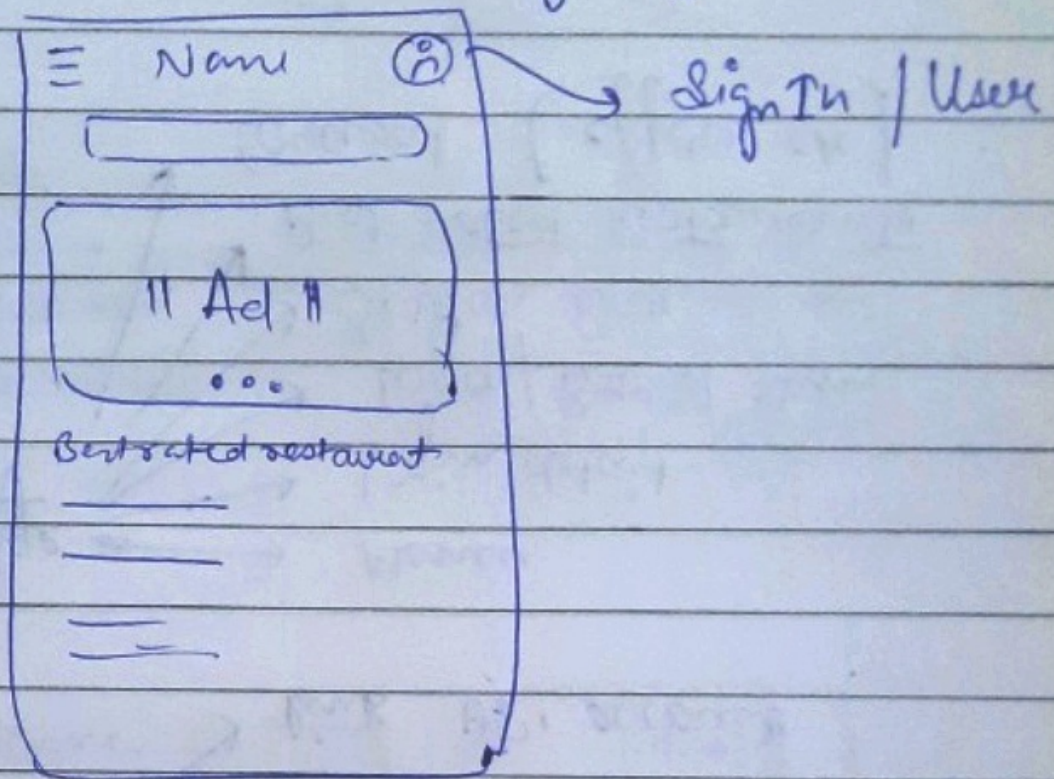 Name
Sign In / User
" Ad "
Best rated restaurat